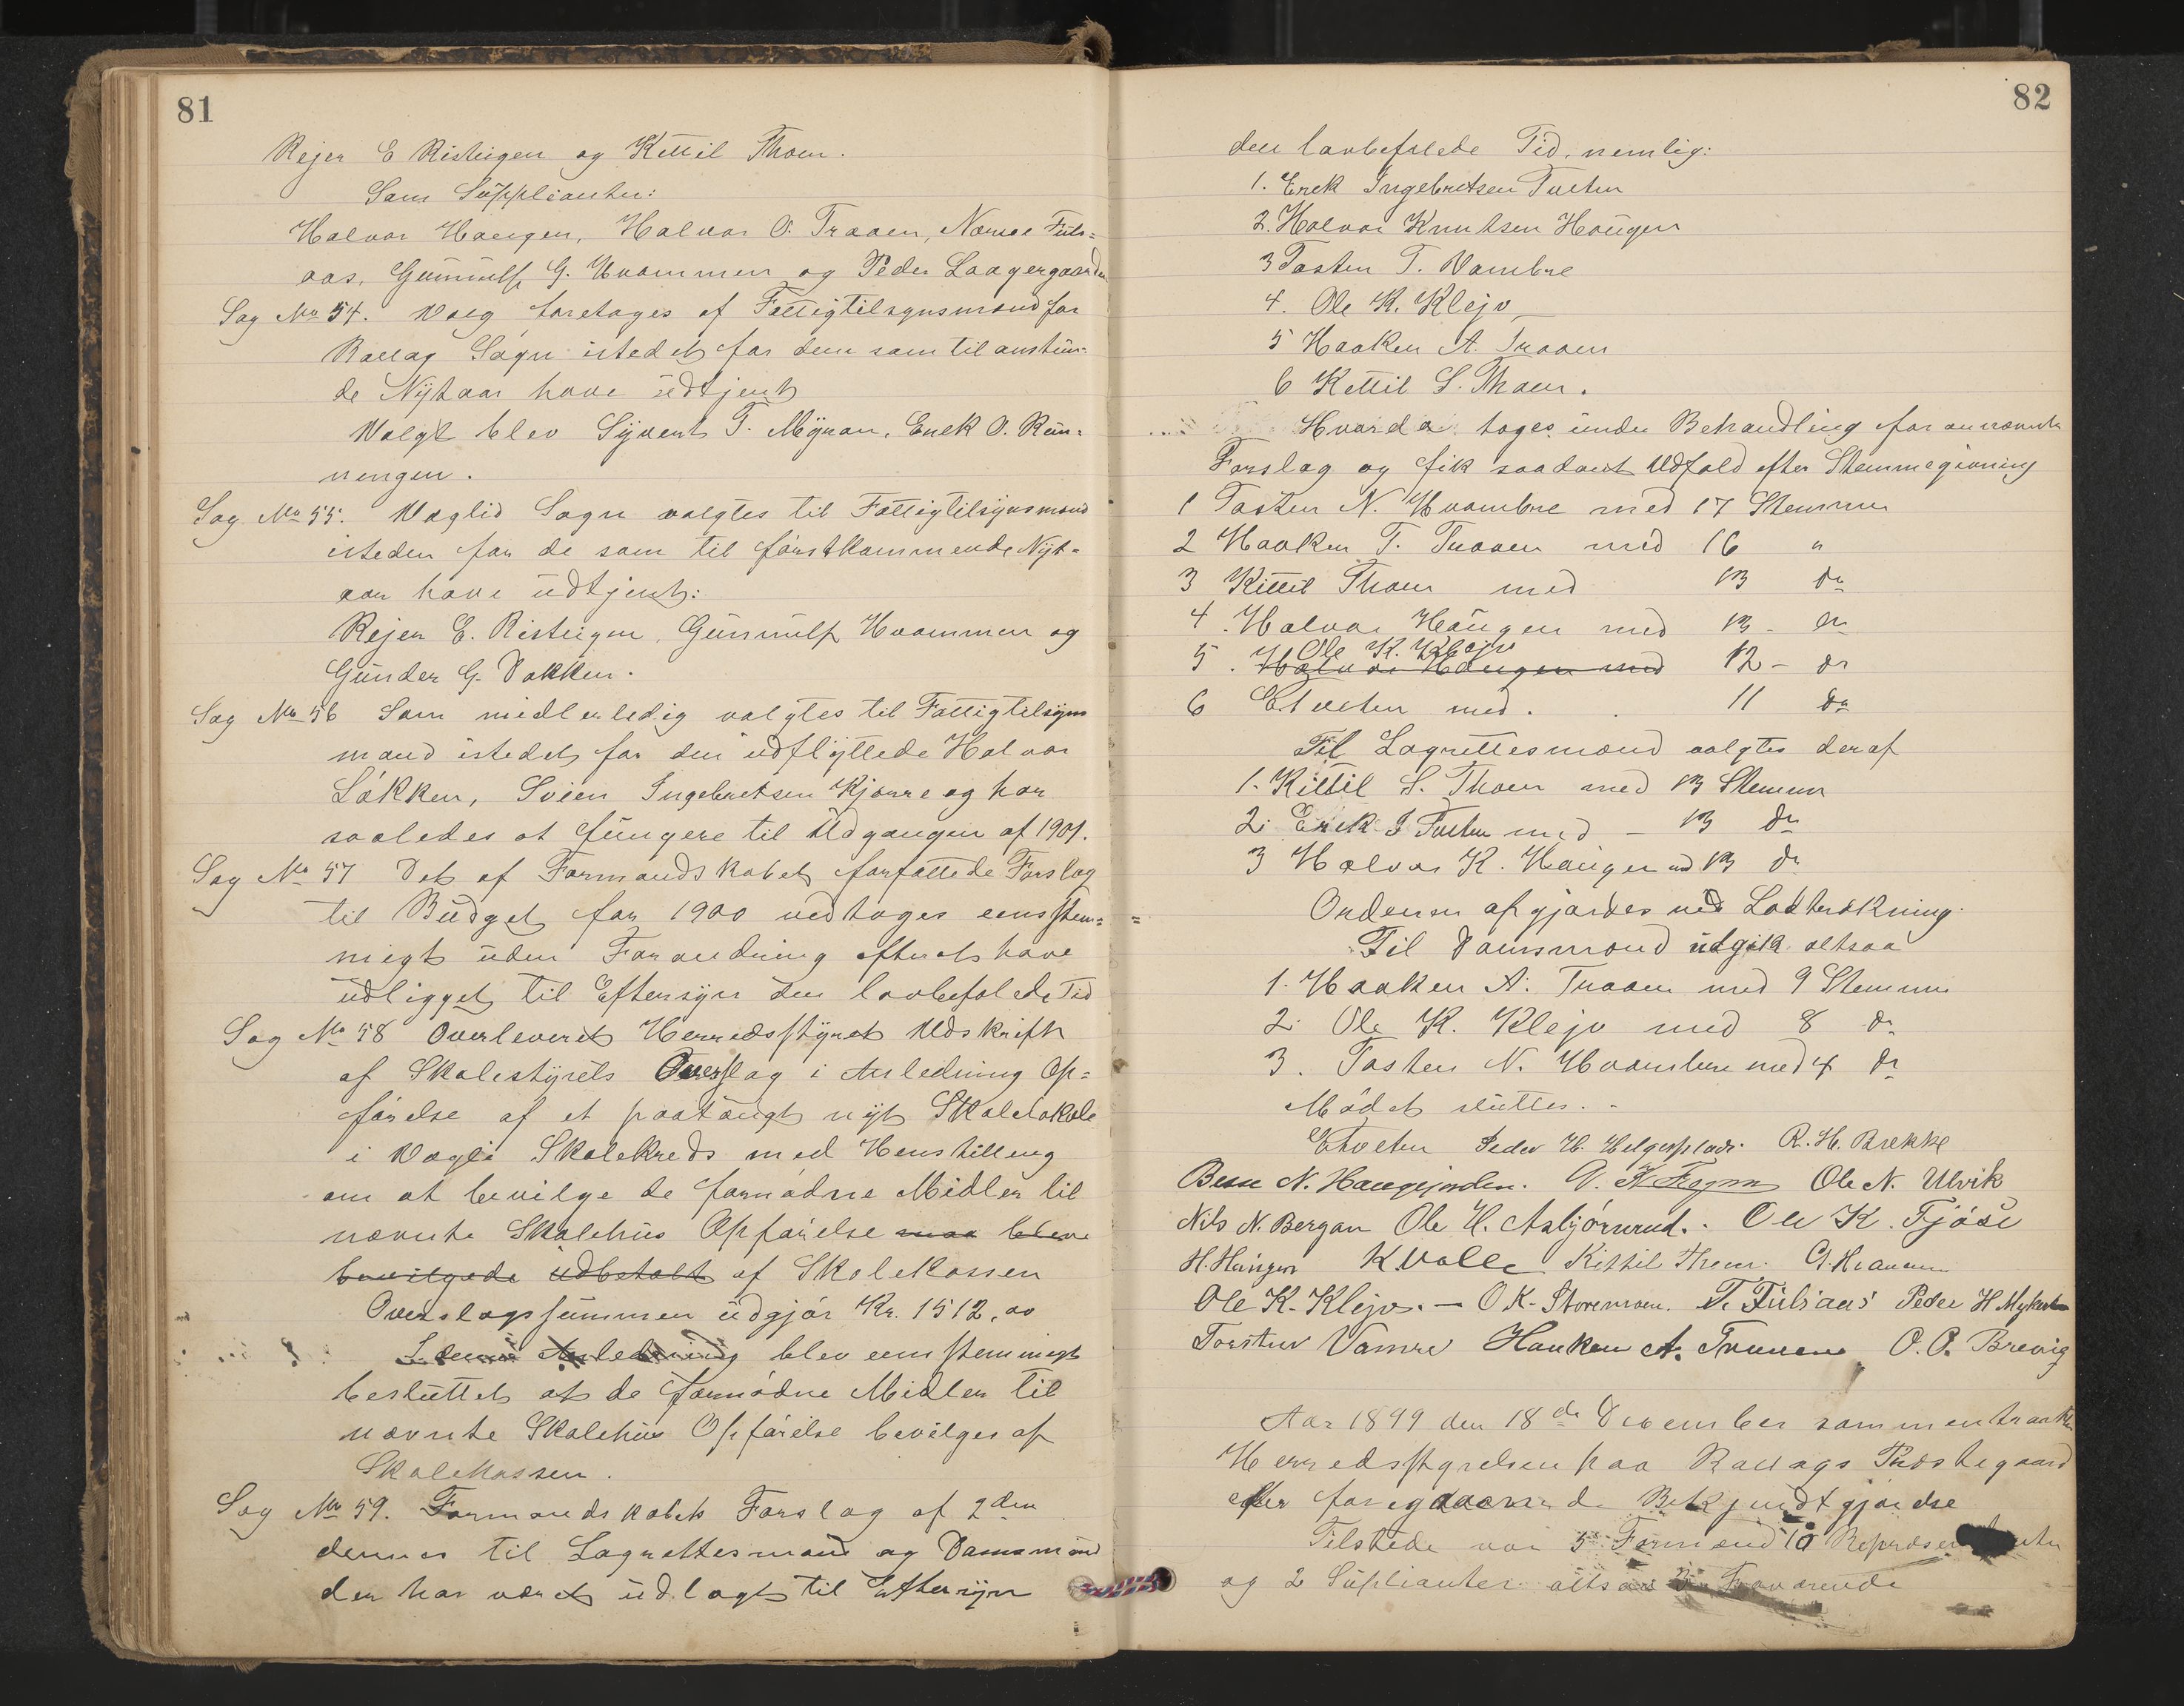 81
Rejer E Risteigen og Kittil Thoen.
Som Süppleanter:
Halvor Haugen, Halvor O. Traaen, Fuls=
aas, Günnülf G. Hvammen og Peder Laagergaarden
Sag No 54. Valg foretages af Fattigtilsynsmænd for
Rollag Sogn istedet for dem som til anstün-
de Nÿtaar have üdtjent
Valgt blev Sÿvert T. Mÿran, Erek O. Rün=
nengen.
Sag No 55. Væglid Sogn valgtes til Fattigtilsÿnsmænd
isteden for de som til förstkommende Nÿt=
aar have üdtjent:
Rejer E. Risteigen, Günnülf Hvammen og
Günder G. Bakken.
Sag No 56 Som midlerledig valgtes til Fattigtilsÿns
mand istedet for den üdflÿttede Halvor
Løkken, Svien Ingebretsen Kjonre og har
saaledes at füngere til Udgangen af 1901.
Sag No 57 Det af Formandskabet forfattede Forslag
til Büdget for 1900 vedtoges eensstem=
migt üden Forandring efterat have
üdligget til Eftersÿn den lovbefalede Tid
Sag No 58 Overleveret Herredsstÿret Udskrift
af Skolestÿrets Overslag i Anledning Op=
førelse af et paatængt nÿt Skolelokale
i Vægli Skolekreds med Henstilleng
om at bevilge de fornødne Midler til
nævnte Skolehüs Opførelse maa blive
bevilgede üdbetalt af Skolekassen
Overslagssümmen üdgjør Kr. 1512,00
I denne Anledning blev eenstemmigt
beslüttet at de fornødne Midler til
nævnte Skolehüs Opførelse bevilges af
Skolekassen.
Sag No 59. Formandskabets Forslag af 2den
dennes til Lagrettesmænd og Domsmænd
der har været üdlagt til Eftersÿn
82
den lovbefalede Tid, nemlig:
1. Erek Ingebretsen Tveten
2. Halvor Knutsen Haügen
3 Tosten T. Vambre
4. Ole K. Klejv
5 Haaken A. Traaen
6 Kettil S. Thoen.
Hvorda toges ünder Behandling
Forslag og fik saadant Udfald efter Stemmegivning
1 Tosten N. Hvambre med 17 Stemmer
2 Haaken T. Traaen med 16 "
3 Kittil Thoen med 13 do
4. Halvor Haügen med 13 - do
Ole K. Klejv
5. Halvor Haugen med 12 - do
6 E. Tveten med. 11 do
Til Lagrettesmænd valgtes deraf
1. Kittil S. Thoen med 13 Stemmer
2. Erek I Tveten med - 13 do
3 Halvor K. Haugen med 13 do
Ordenen afgjordes ved Lodtrækning.
Til Domsmænd üdgik altsaa
1. Haaken A. Traaen med 9 Stemmer
2. Ole K. Klejv med 8 do
3. Tosten N. Hvambre med 4 do
Mødet slüttes.
E Tveten Peder H. Helgesplads. R. H. Brekke
N. Ole N. Ulvik
Nils N. Bergan Ole H. Asbjørnrud. Ole K. Fjøse
H. Haügen K Valle Kittil Thoen. G. Hvammen
Ole K. Klejv. — O K. Storemoen. T. Fülsaas Peder H
Torsten Vamre Haaken A. Traaen O. O. Brevig
Aar 1899 den 18de December sammentraadte
Herredsstyrelsen paa Rollags Prestegaard
efter foregaaende Bekjendtgjørelse
Tilstede var 5 Formænd 10 Repræsentanter
og 2 Süplianter altsaa 3 Fraværende